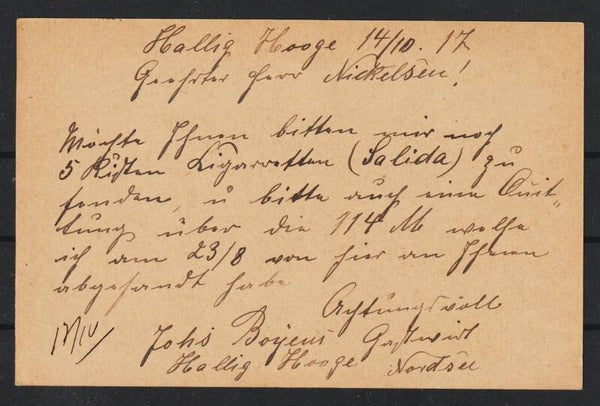 Hallig Hooge 14/10. 17
Geehrter Herr Nickelsen!
Möchte Ihnen bitten mir noch
5 Kisten Zigarretten (Salida) zu
senden, u bitte auch eine Quit„
tung über die 114 M welche
ich am 23/8 von hier an Ihnen
abgesandt habe
Achtungsvoll
Johs Boyens Gastwirt
Hallig Hooge Nordsee